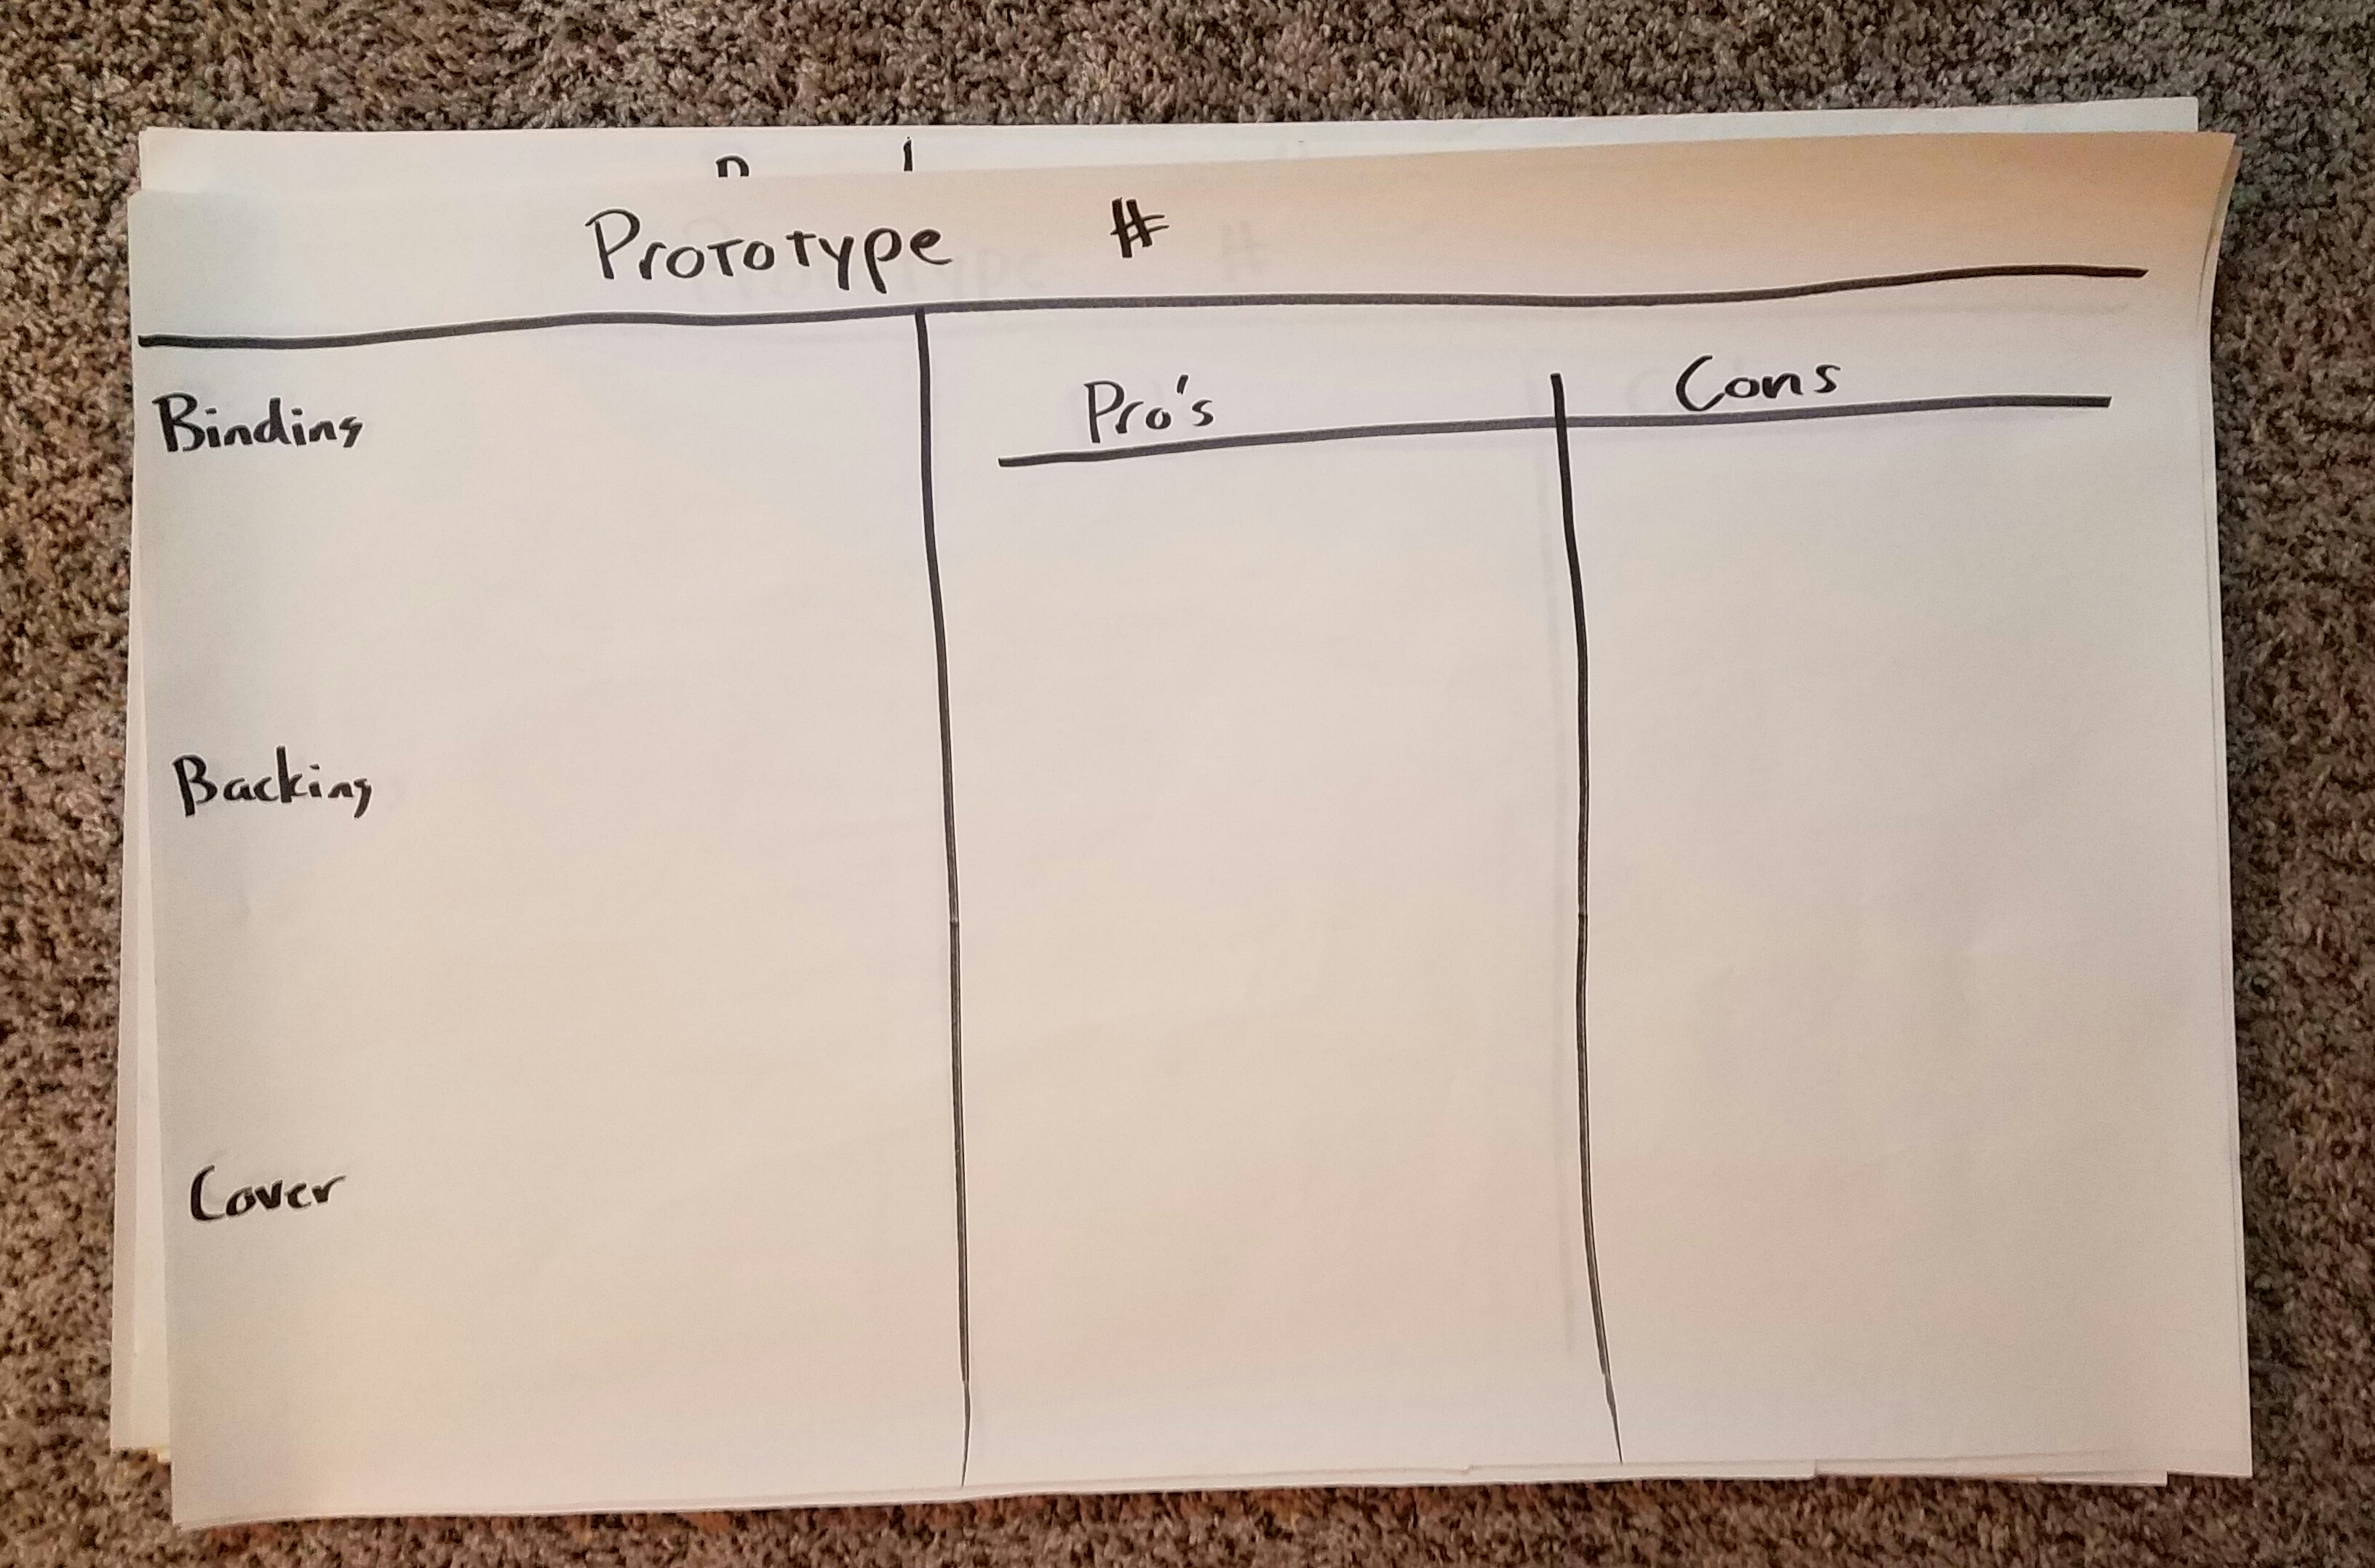 Prototype #
Pro's Cons
Binding
Backing
Cover